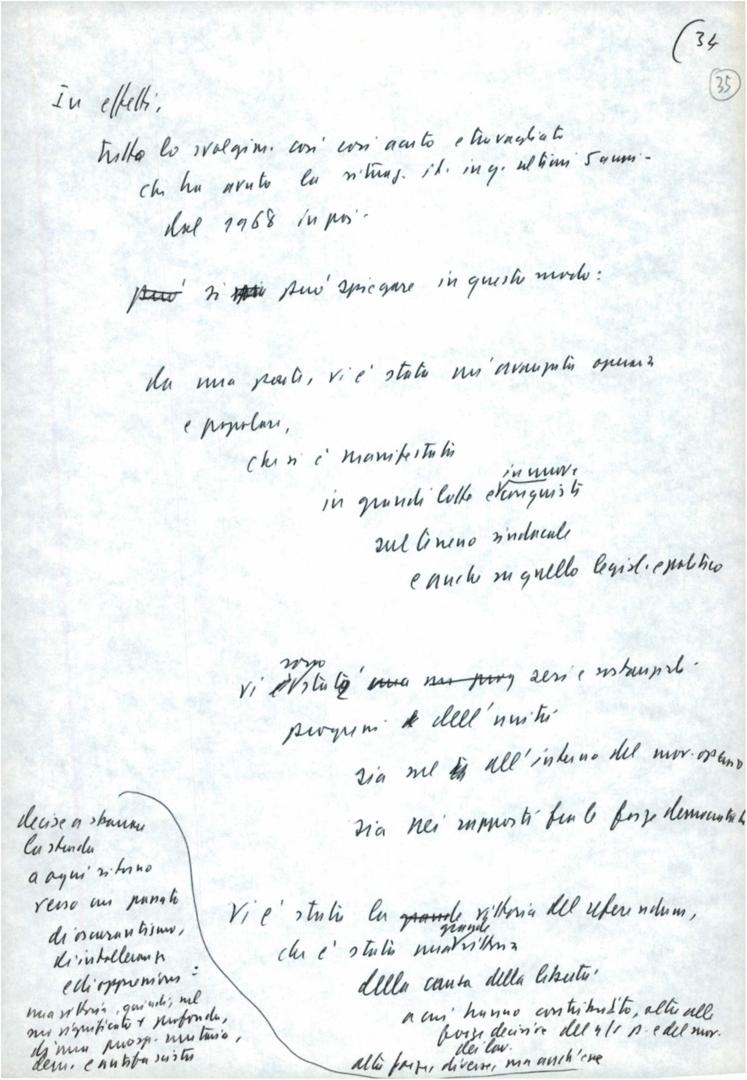 (34
35
In effetti,
tutto lo svolgim. così così acuto e travagliato
che ha avuto la situaz. it. in q. ultimi 5 anni -
dal 1968 in poi -
può si può spiegare in questo modo:
da una parte, vi è stata un'avanzata operaia
e popolare,
che si è manifestata
in nuove
in grandi lotte e conquiste
sul terreno sindacale
e anche su quello legisl. e politico
sono
vi è stata una seri e sostanziali
progressi dell'unità
sia nel all'interno del mov. operaio
sia nei rapporti fra le forze democratiche
Vi è stata la grande vittoria del referendum,
grande
che è stata una vittoria
della causa della libertà
a cui hanno contribuito, oltre alle
forze decisive del n/s p. e del mov.
dei lav.
altre forze, diverse, ma anch'esse
decise a sbarrare
la strada
a ogni ritorno
verso un passato
di oscurantismo,
di intolleranza
e di oppressione:
una vittoria, quindi, nel
suo significato + profondo,
di una prosp. unitaria,
dem. e antifascista